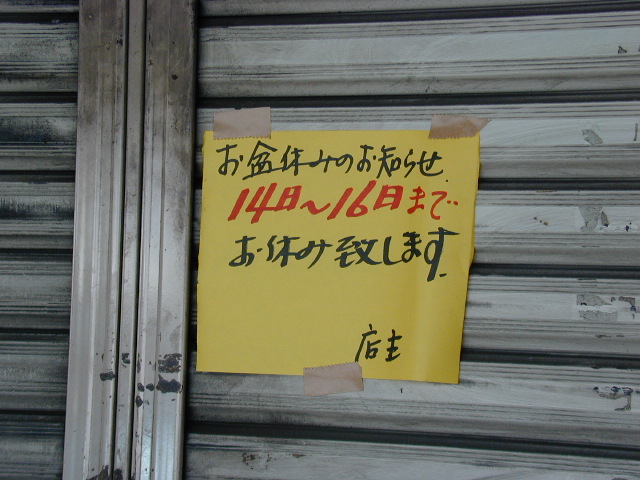 お盆休みのお知らせ
14日～16日まで
お休み致します
店主